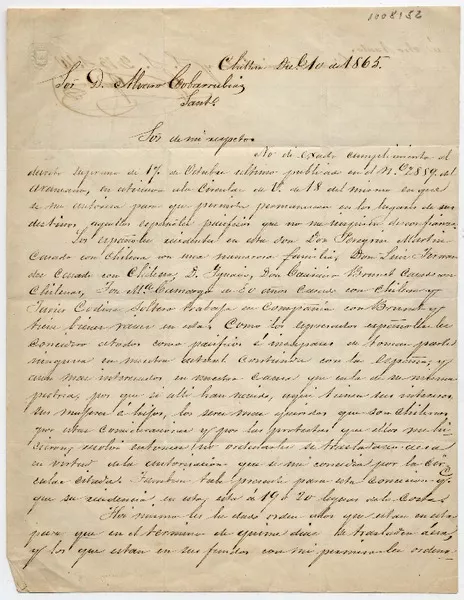 1008152
Chillan Dic. 10 de 1865.
Sor. D. Alvaro Covarrubias
Santo.
Sor. de mi respeto
No di exacto cumplimiento al
decreto supremo de 17 de Octubre ultimo publicado en el No. 2889 del
Araucano, en a la Circular de V. de 18 del mismo en que
se me autoriza para que permita permanecer en los lugares de sus
destinos, aquellos españoles pacificos que no me de confianza.
Los españoles residentes en esta son Don Martin
Casado con Chilena con una numerosa familia, Don Luis
Casado con Chilena; D. Ignacio, Don Casimiro Bonnet Casado con
Chilena, Jose Ma. Camarga de 50 años Casado con Chilena y
Javier Codina Soltero trabaja en Compañia con Bonnet y
tiene en esta. Como los españoles los
considero como pacificos é incapaces de tomar parte
ninguna en nuestra actual Contienda con la España; y
aun mas interesados en nuestra Causa que en la de su misma
patria, por que si alli han nacido, aquí tienen sus intereses
sus mujeres é hijos, los seres mas queridos que son Chilenos,
por estas Consideraciones y por las protestas que ellos me hi-
cieron, entonces no ordenarles se trasladaran á
en virtud de la autorizacion que se me concedia por la Cir-
cular citada. Tambien tube presente para esta Concesion
que su residencia en esta, está á 19 ó 20 leguas de la Costa.
Hoi mismo les he dado orden á los que estan en esta
para que en el termino de quince dias se trasladen á
y los que estan en sus fundos con mi permiso les ordeno